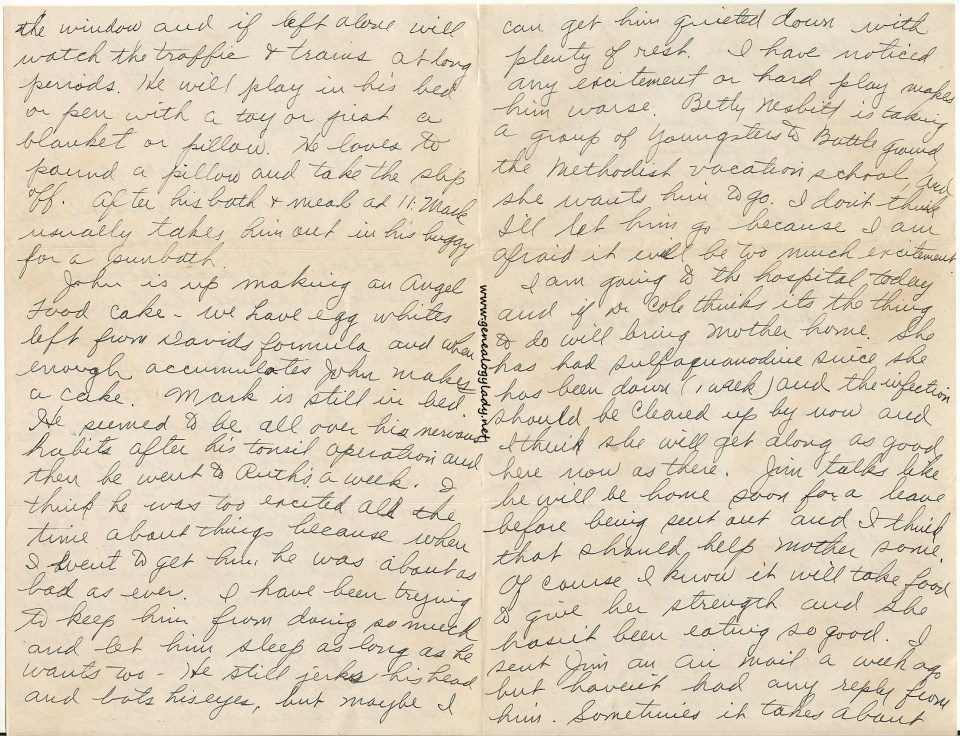 the window and if left alone will
watch the traffic & trains at long
periods. He will play in his bed
or pen with a toy or just a
blanket or pillow. He loves to
pound a pillow and take the slip
off. After his bath & meal at 11. Mark
usually takes him out in his buggy
for a sunbath.
John is up making an Angel
Food Cake - we have egg whites
left from Davids formula and when
enough accumulates John makes
a cake. Mark is still in bed.
He seemed to be all over his nervous
habits after his tonsil operation and
then he went to Ruth's a week. I
think he was too excited all the
time about things because when
I went to get him, he was about as
bad as ever. I have been trying
to keep him from doing so much
and let him sleep as long as he
wants too - He still jerks his head
and bats his eyes, but maybe I
can get him quieted down with
plenty of rest. I have noticed
any excitement or hard play makes
him worse. Betty Nesbitt is taking
a group of Youngsters to Battle ground
the Methodist vacation school, and
she wants him to go. I don't think
I'll let him go because I am
afraid it will be too much excitement.
I am going to the hospital today
and if Dr Cole thinks its the thing
to do will bring Mother home. She
has had sulfaquanodine since she
has been down (1 week) and the infection
should be cleared up by now and
I think she will get along as good
here now as there. Jim talks like
he will be home soon for a leave
before being sent out and I think
that should help Mother some.
Of course I know it will take food
to give her strength and she
hasn't been eating so good. I
sent Jim an air mail a week ago
but haven't had any reply from
him. Sometimes it takes about
www.genealogylady.net